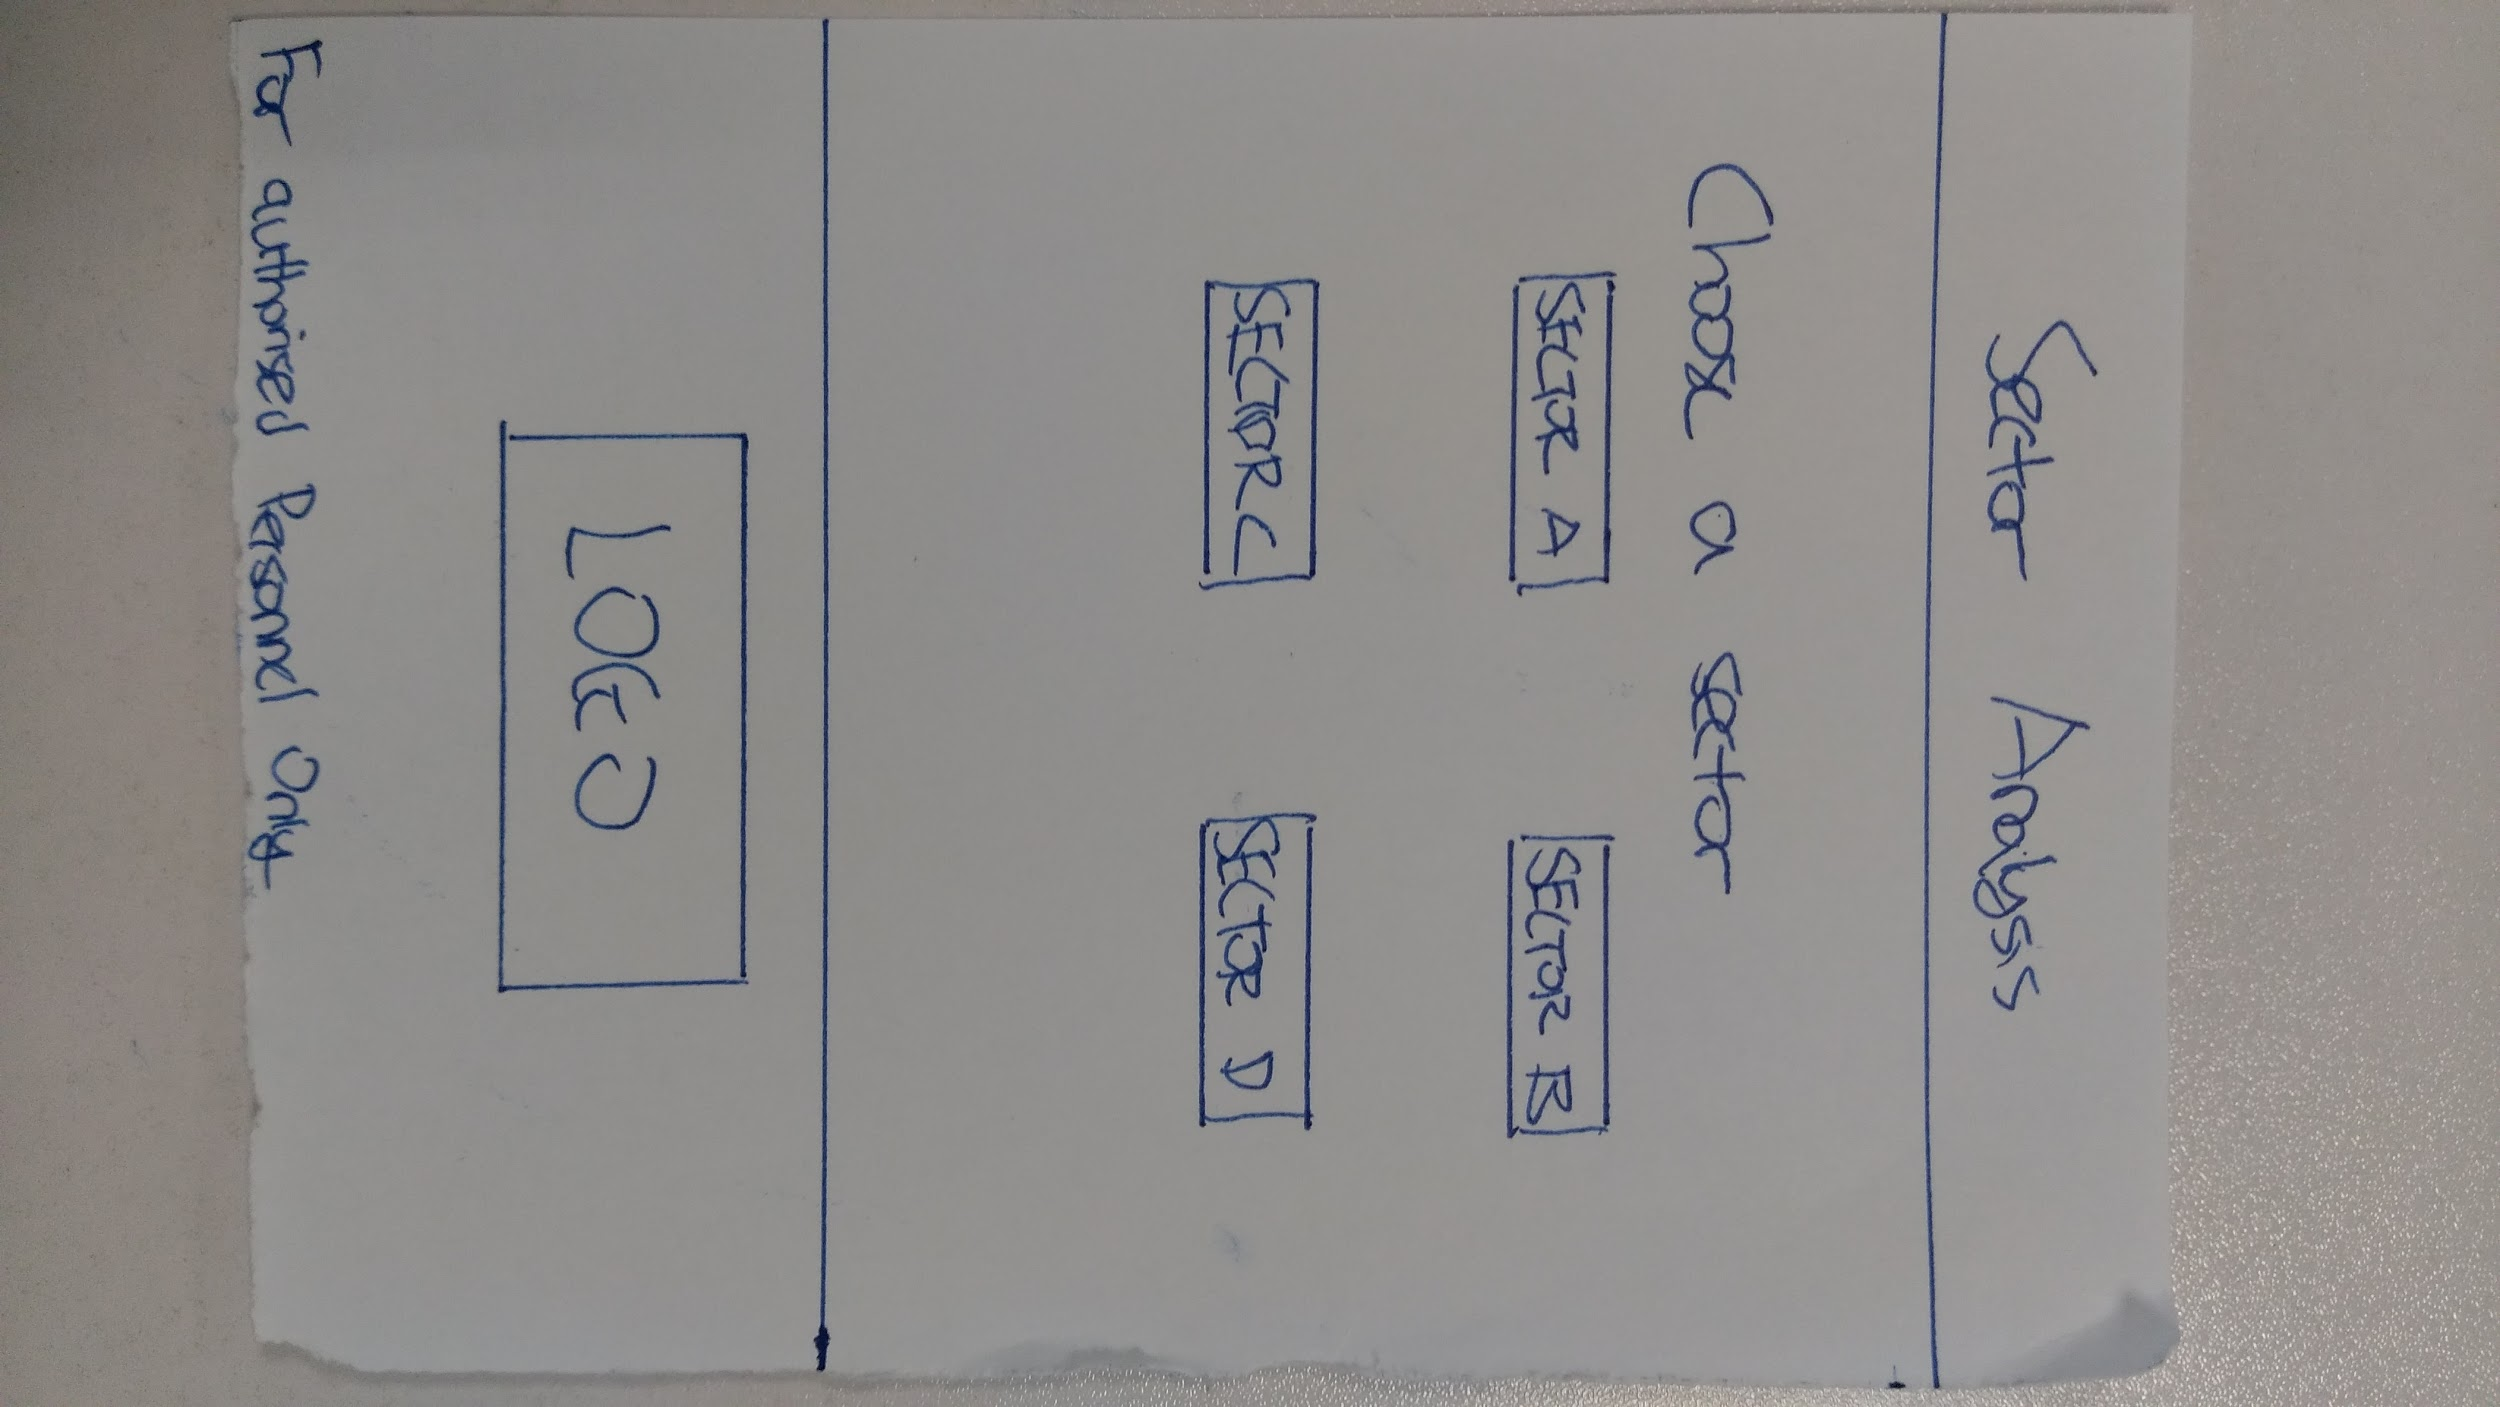 Sector Analysis
Choose a sector
SECTOR A
SECTOR B
SECTOR C
SECTOR D
LOGO
For authorised Personnel Only